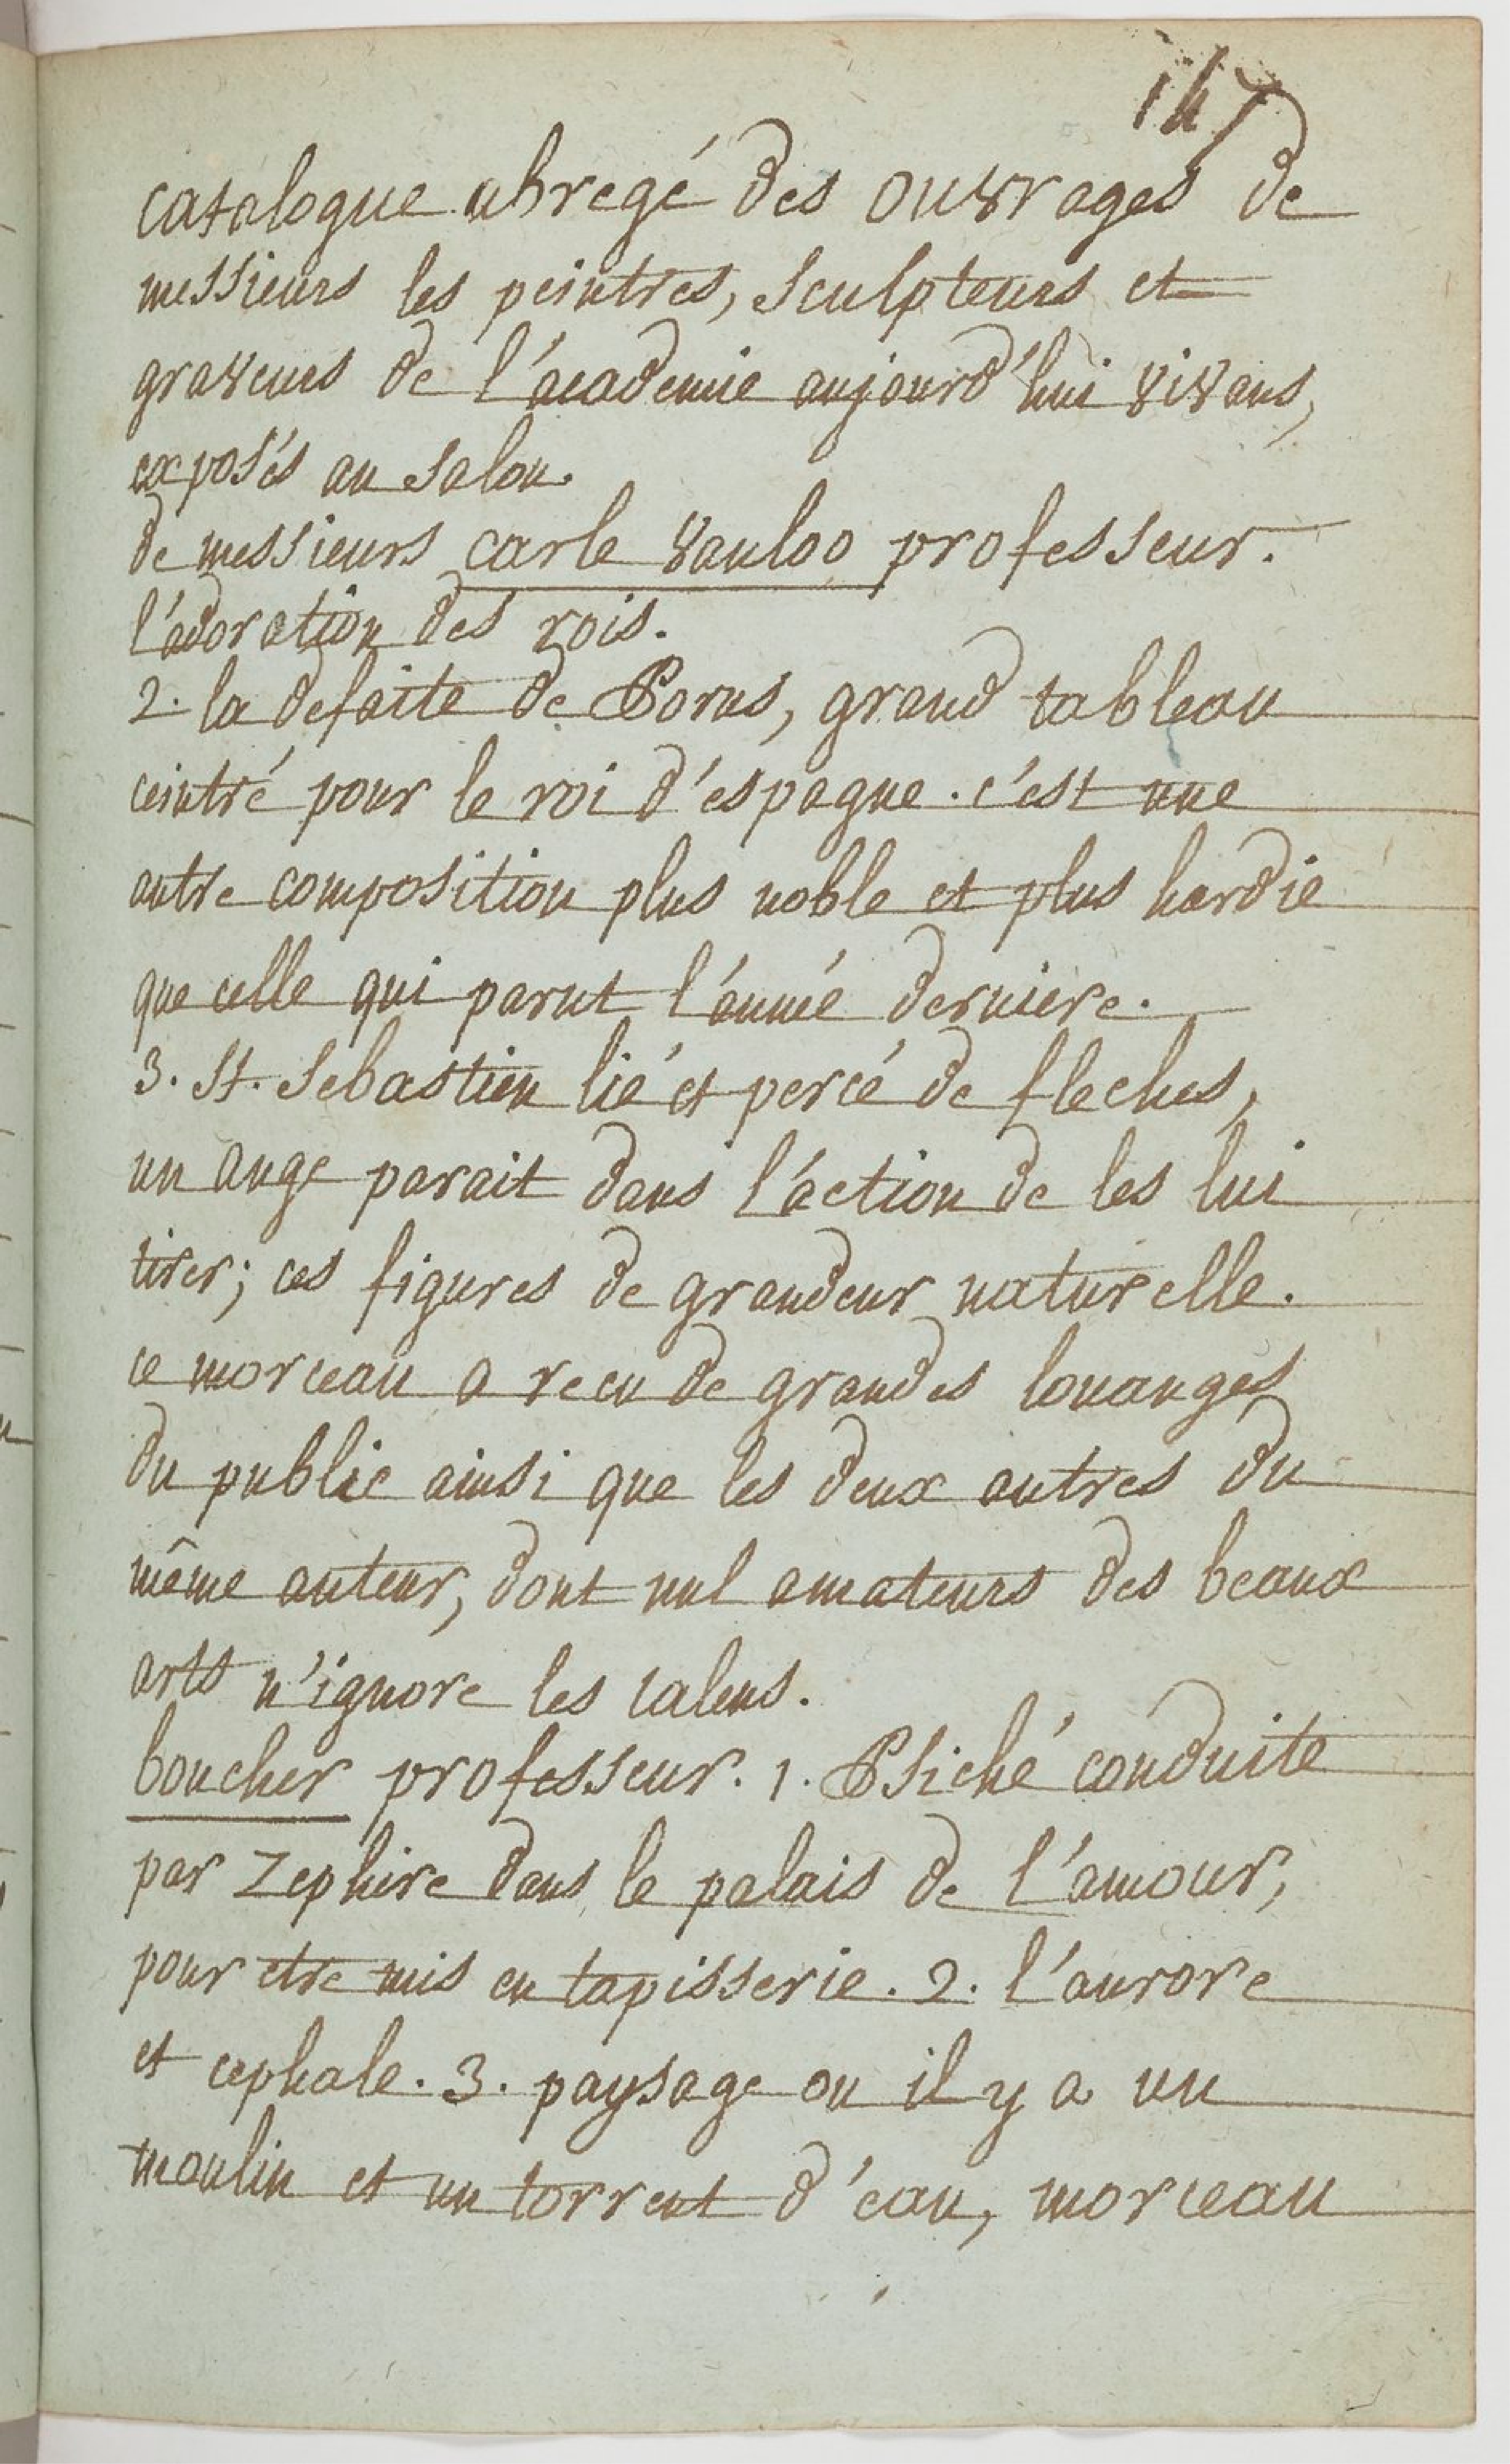 147
catalogue abregé des ouvrages de
messieurs les peintres, sculpteurs et
graveurs de l'academie aujourd'hui vivans,
exposés au salon.
de messieurs carle vanloo professeur.
l'adoration des rois.
2. la defaite de Porus, grand tableau
ceintré pour le roi d'espagne. c'est une
autre composition plus noble et plus hardie
que celle qui parut l'année derniere.
3. St. Sebastien lié et percé de fleches,
un ange parait dans l'action de les lui
tirer; ces figures de grandeur naturelle.
ce morceau a recu de grandes louanges
du public ainsi que les deux autres du
même auteur, dont nul amateurs des beaux
arts n'ignore les talens.
boucher professeur. 1. Psiché conduite
par Zephire dans le palais de l'amour,
pour etre mis en tapisserie. 2. l'aurore
et cephale. 3. paysage ou il y a un
moulin et un torrent d'eau, morceau